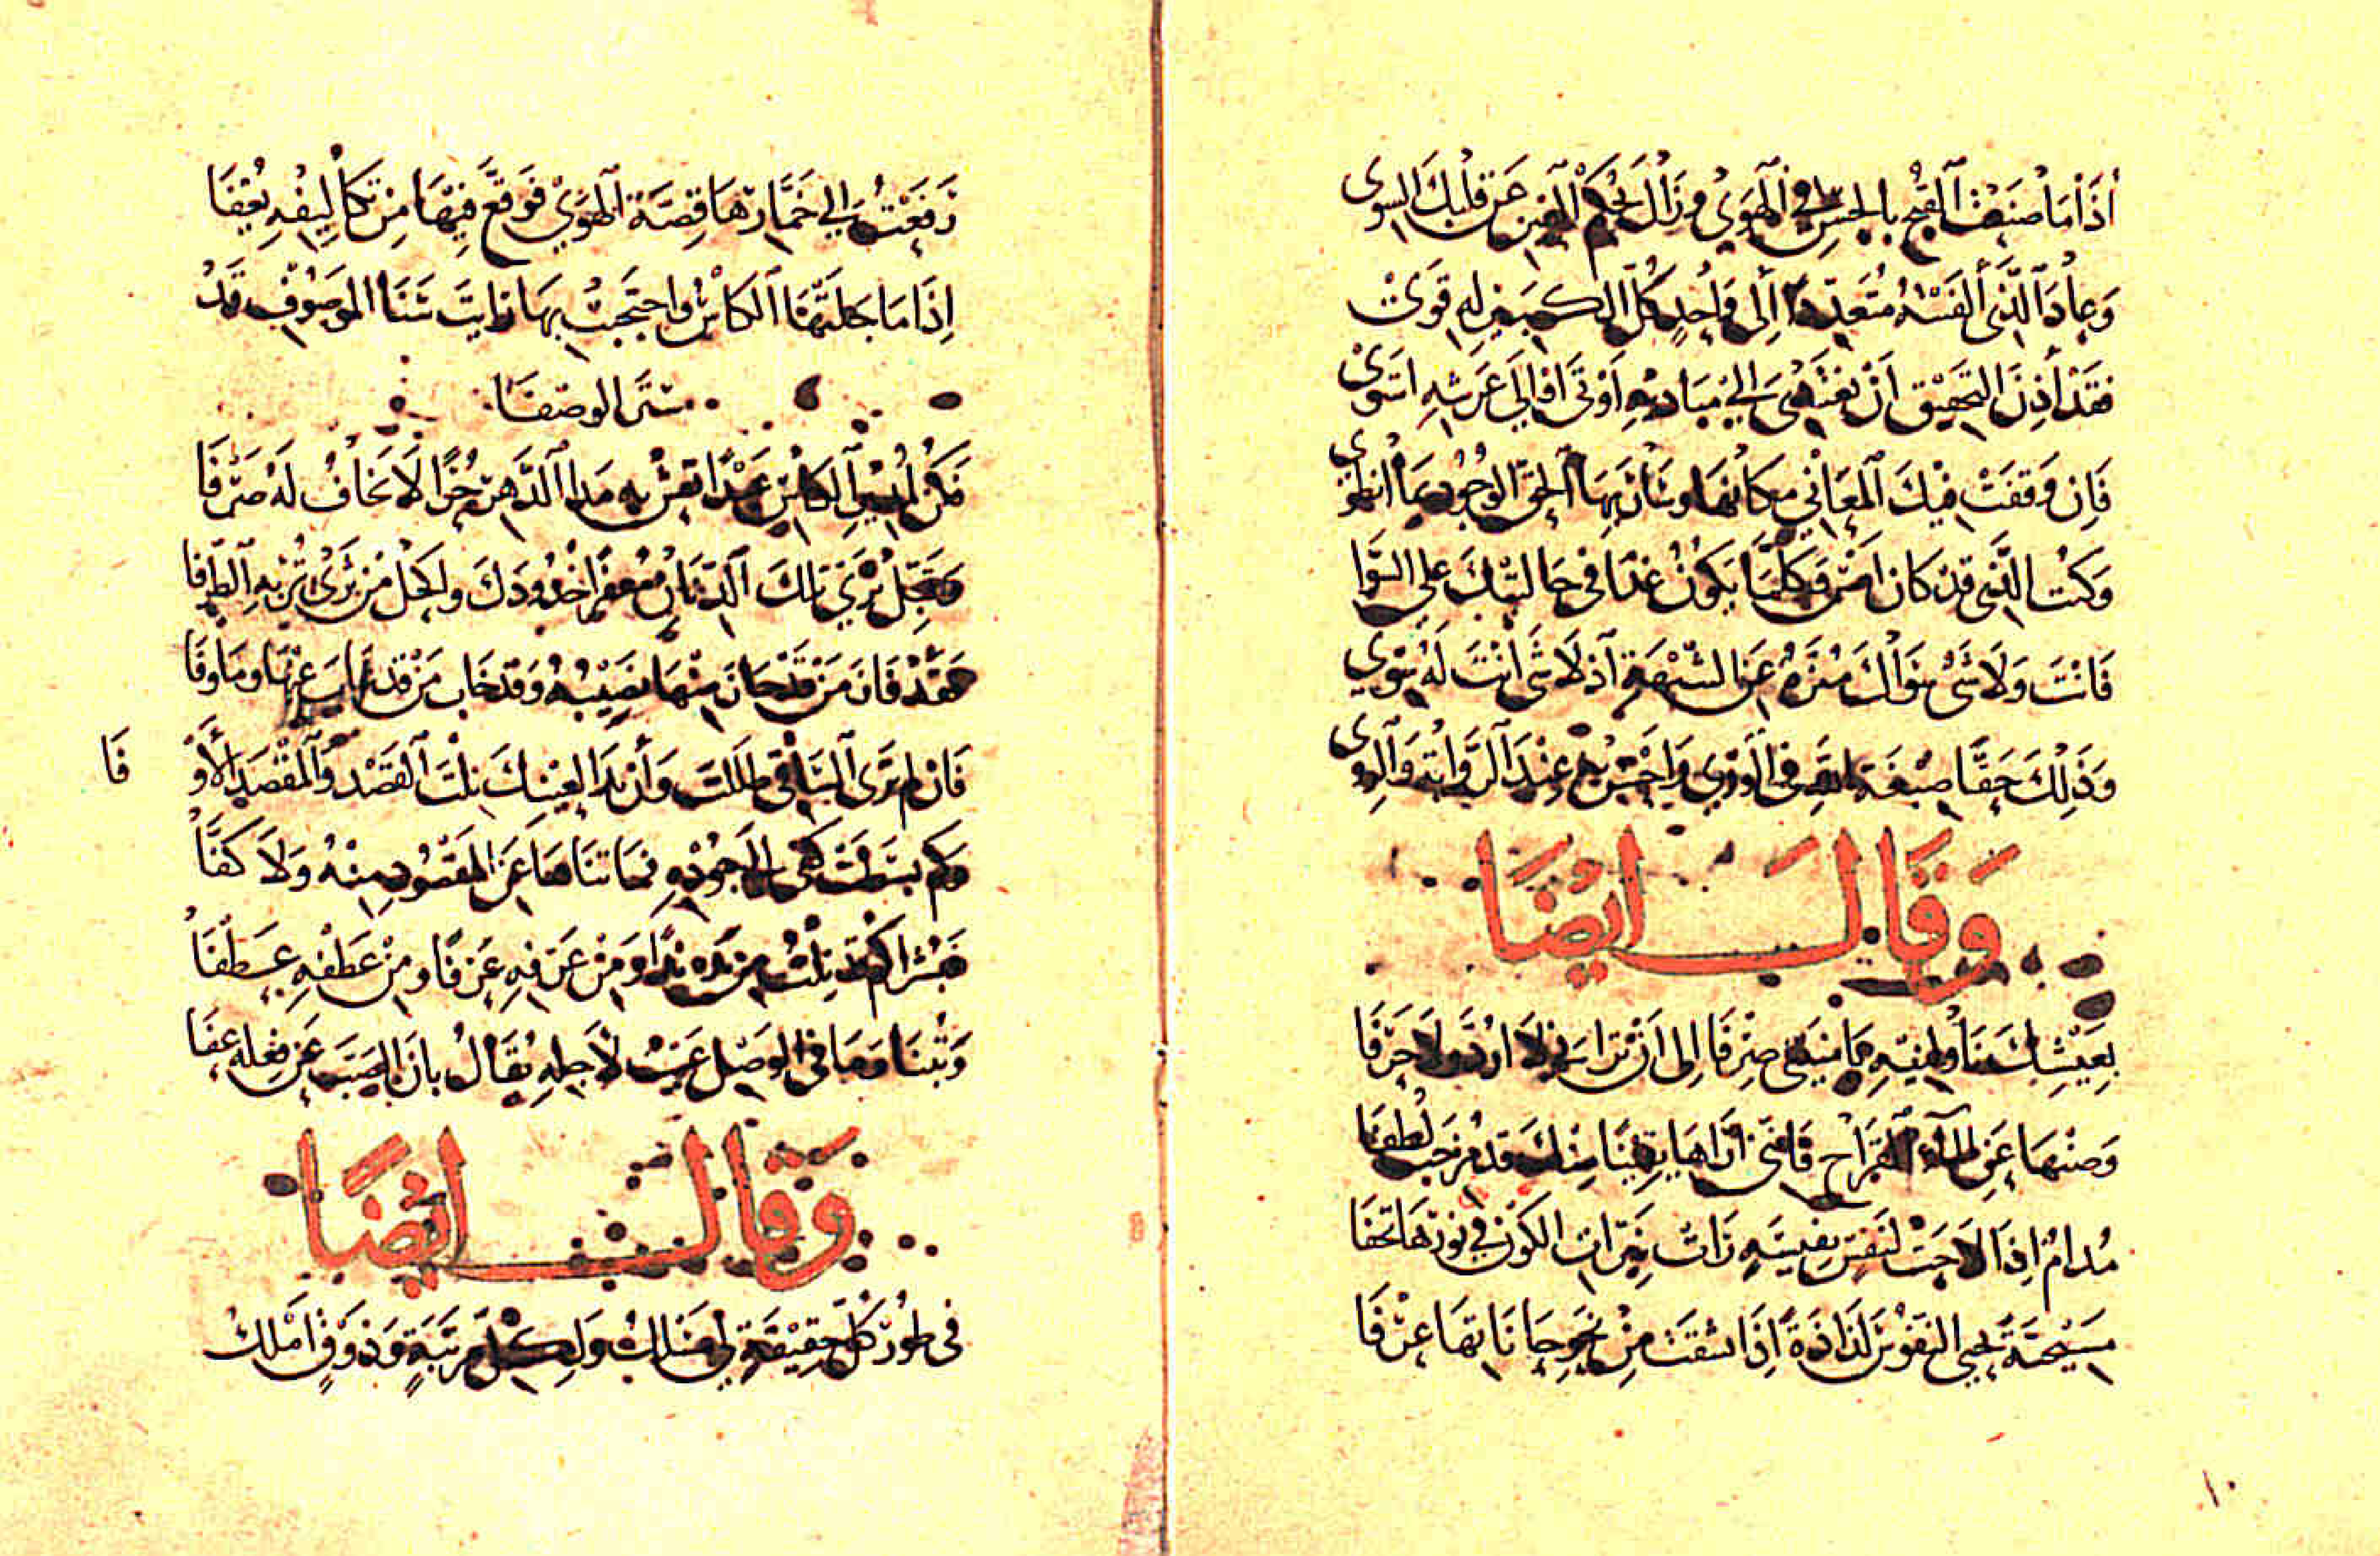 إذا ما صنعت القبح بالحسن في الهوى وزال بحكم العين عن قلبك السوى
وعاد الذي ألفته متعددا إلى واحد كل الكمين له قوى
فقد أذن التحقيق أن تغتدي إلى مباديه أو ترقا إلى عرشه استوى
فإن وقفت فيك المعاني مكانها وبان بها الحق الوجود بما انطوى
وكنت الذي قد كان امس وكلما يكون غدا في حالتيك على السوا
فانت ولا شئ سواك منزه عن الشبهة اذ لا شئ انت له سوى
وذلك حقا صبغة الله في الورى واحسن بهم عند الرواية والروى
وقال ايضا
بعيشك ناولنيه يا منيتي صرفا الى ان تراني لا ارد ولا حرفا
وصنها عن الماء القراح فانني اراها بنا منك قد مزجت لطفا
مدام اذا لاحت لنفس نفيسة رات نيرات الكون في نورها تخفا
مسيحية تحيي النفوس لذاذة اذا نشقت من نحو حاناتها عرفا
رفعت إلى خمارها قصة الهوى فوقع فيها من تكاليفه يعفا
إذا ما جلتها الكاس واحتجبت بها رايت سنا الموصوف قد
ستر الوصفا
فكن لمدير الكاس عبدا تعش به مدا الدهر حرا لا تخاف له صرفا
وقبل ثرى تلك الدنان معفرا خدودك واكحل من ثرى تربه الطرفا
فقد فاز من قد حاز منها نصيبه وقد خاب من قد غاب عنها وما وفا
فان لم ترى الساقي ظللت وأن بدا لعينك نلت القصد والمقصد الأو
فا
وكم بسطت كفي إلى جوده فما تناها عن المقصود منه ولا كفا
فبشراكم قد نلت من يده ندا ومن عرفه عرفا ومن عطفه عطفا
وتبنا وما في الوصل عيب لأجله يقال بان الصب عن فعله عفا
وقال ايضا
في طور كل حقيقة لي مسلك ولكل مرتبة وذوق املك
١٠